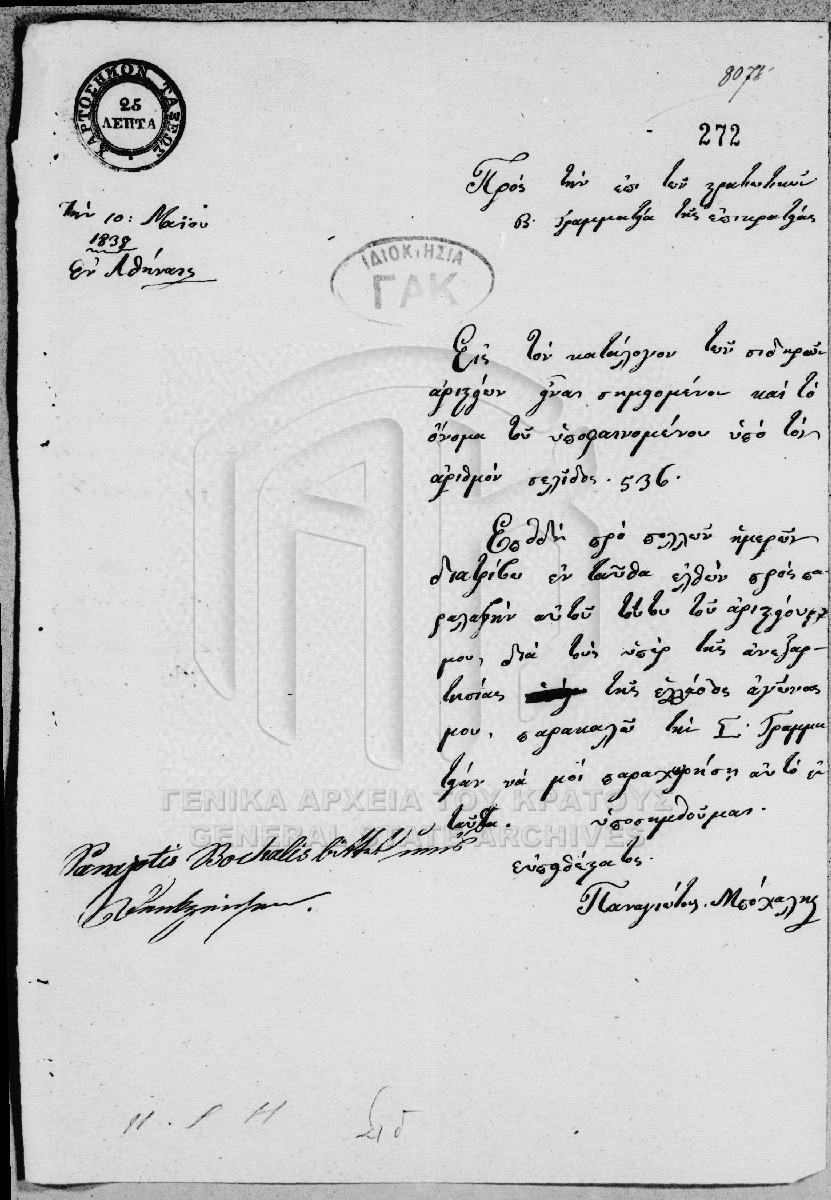 ΧΑΡΤΟΣΗΜΟΝ ΤΑΞΕΩΣ
25
ΛΕΠΤΑ
272
Πρὸς τὴν ἐπὶ τῶν στρατιωτικῶν
Β. Γραμματείαν τῆς ἐπικρατείας
Τὴν 10: Μαΐου
1838
Ἐν Ἀθήναις
ΙΔΙΟΚΤΗΣΙΑ
ΓΑΚ
Εἰς τὸν κατάλογον τῶν σιδηρῶν
ἀριστείων εἶναι σημειομένον καὶ τὸ
ὄνομα τοῦ ὑποφαινομένου ὑπὸ τὸν
ἀριθμὸν σελίδος . 536 .
Ἐπειδὴ πρὸ πολλῶν ἡμερῶν
διατρίβω ἐνταῦθα ἐλθὼν πρὸς πα
ραλαβὴν αὐτοῦ τούτου τοῦ ἀριστείου
μου, διὰ τοὺς ὑπὲρ τῆς ἀνεξαρ-
τησίας τῆς ἑλλάδος ἀγώνας
μου, παρακαλῶ τὴν Σ. Γραμμα
τείαν νὰ μοὶ παραχωρήσῃ αὐτὸ
ὑποσημειοῦμαι.
ΓΕΝΙΚΑ ΑΡΧΕΙΑ ΤΟΥ ΚΡΑΤΟΥΣ
GENERAL STATE ARCHIVES
εὐπειθέστατος.
Παναγιώτης Μπόχαλης
Panajotis Bochalis bittet um